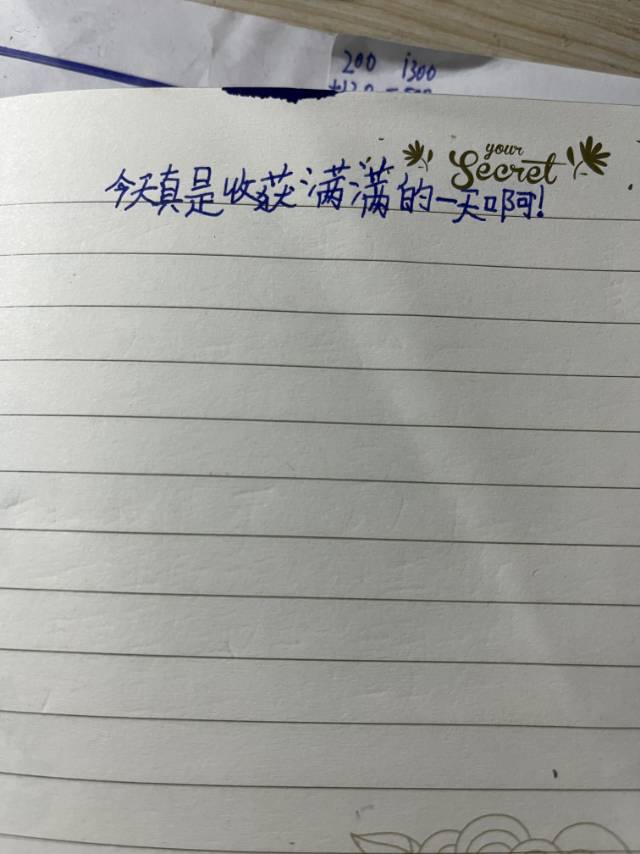 200 1300
your
Secret
今天真是收获满满的一天啊!